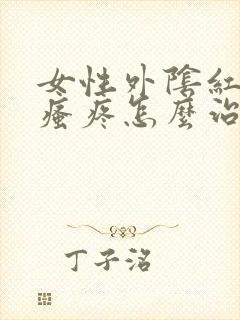 女性外陰紅
瘙疼怎麼治
丁子洺